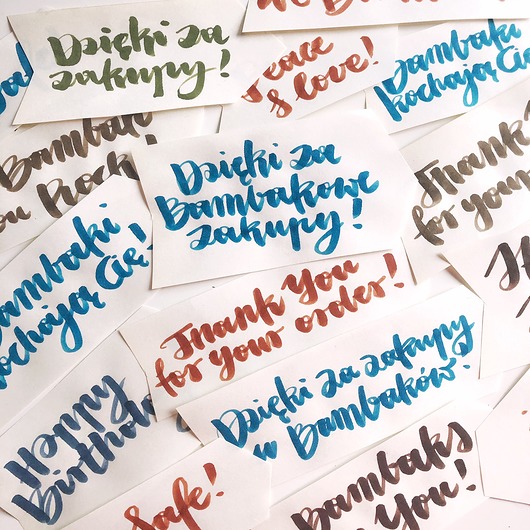 Dzięki za
zakupy!
Peace
& love!
Bambaki
kochają Cię
Bambaks
you Rock!
Dzięki za
Bambakowe
zakupy!
Thank
for your
Bambaki
kochają Cię!
Thank You
for your order!
Happy
Birthd
Dzięki za zakupy
w Bambaków!
safe!
Bambaks
You!